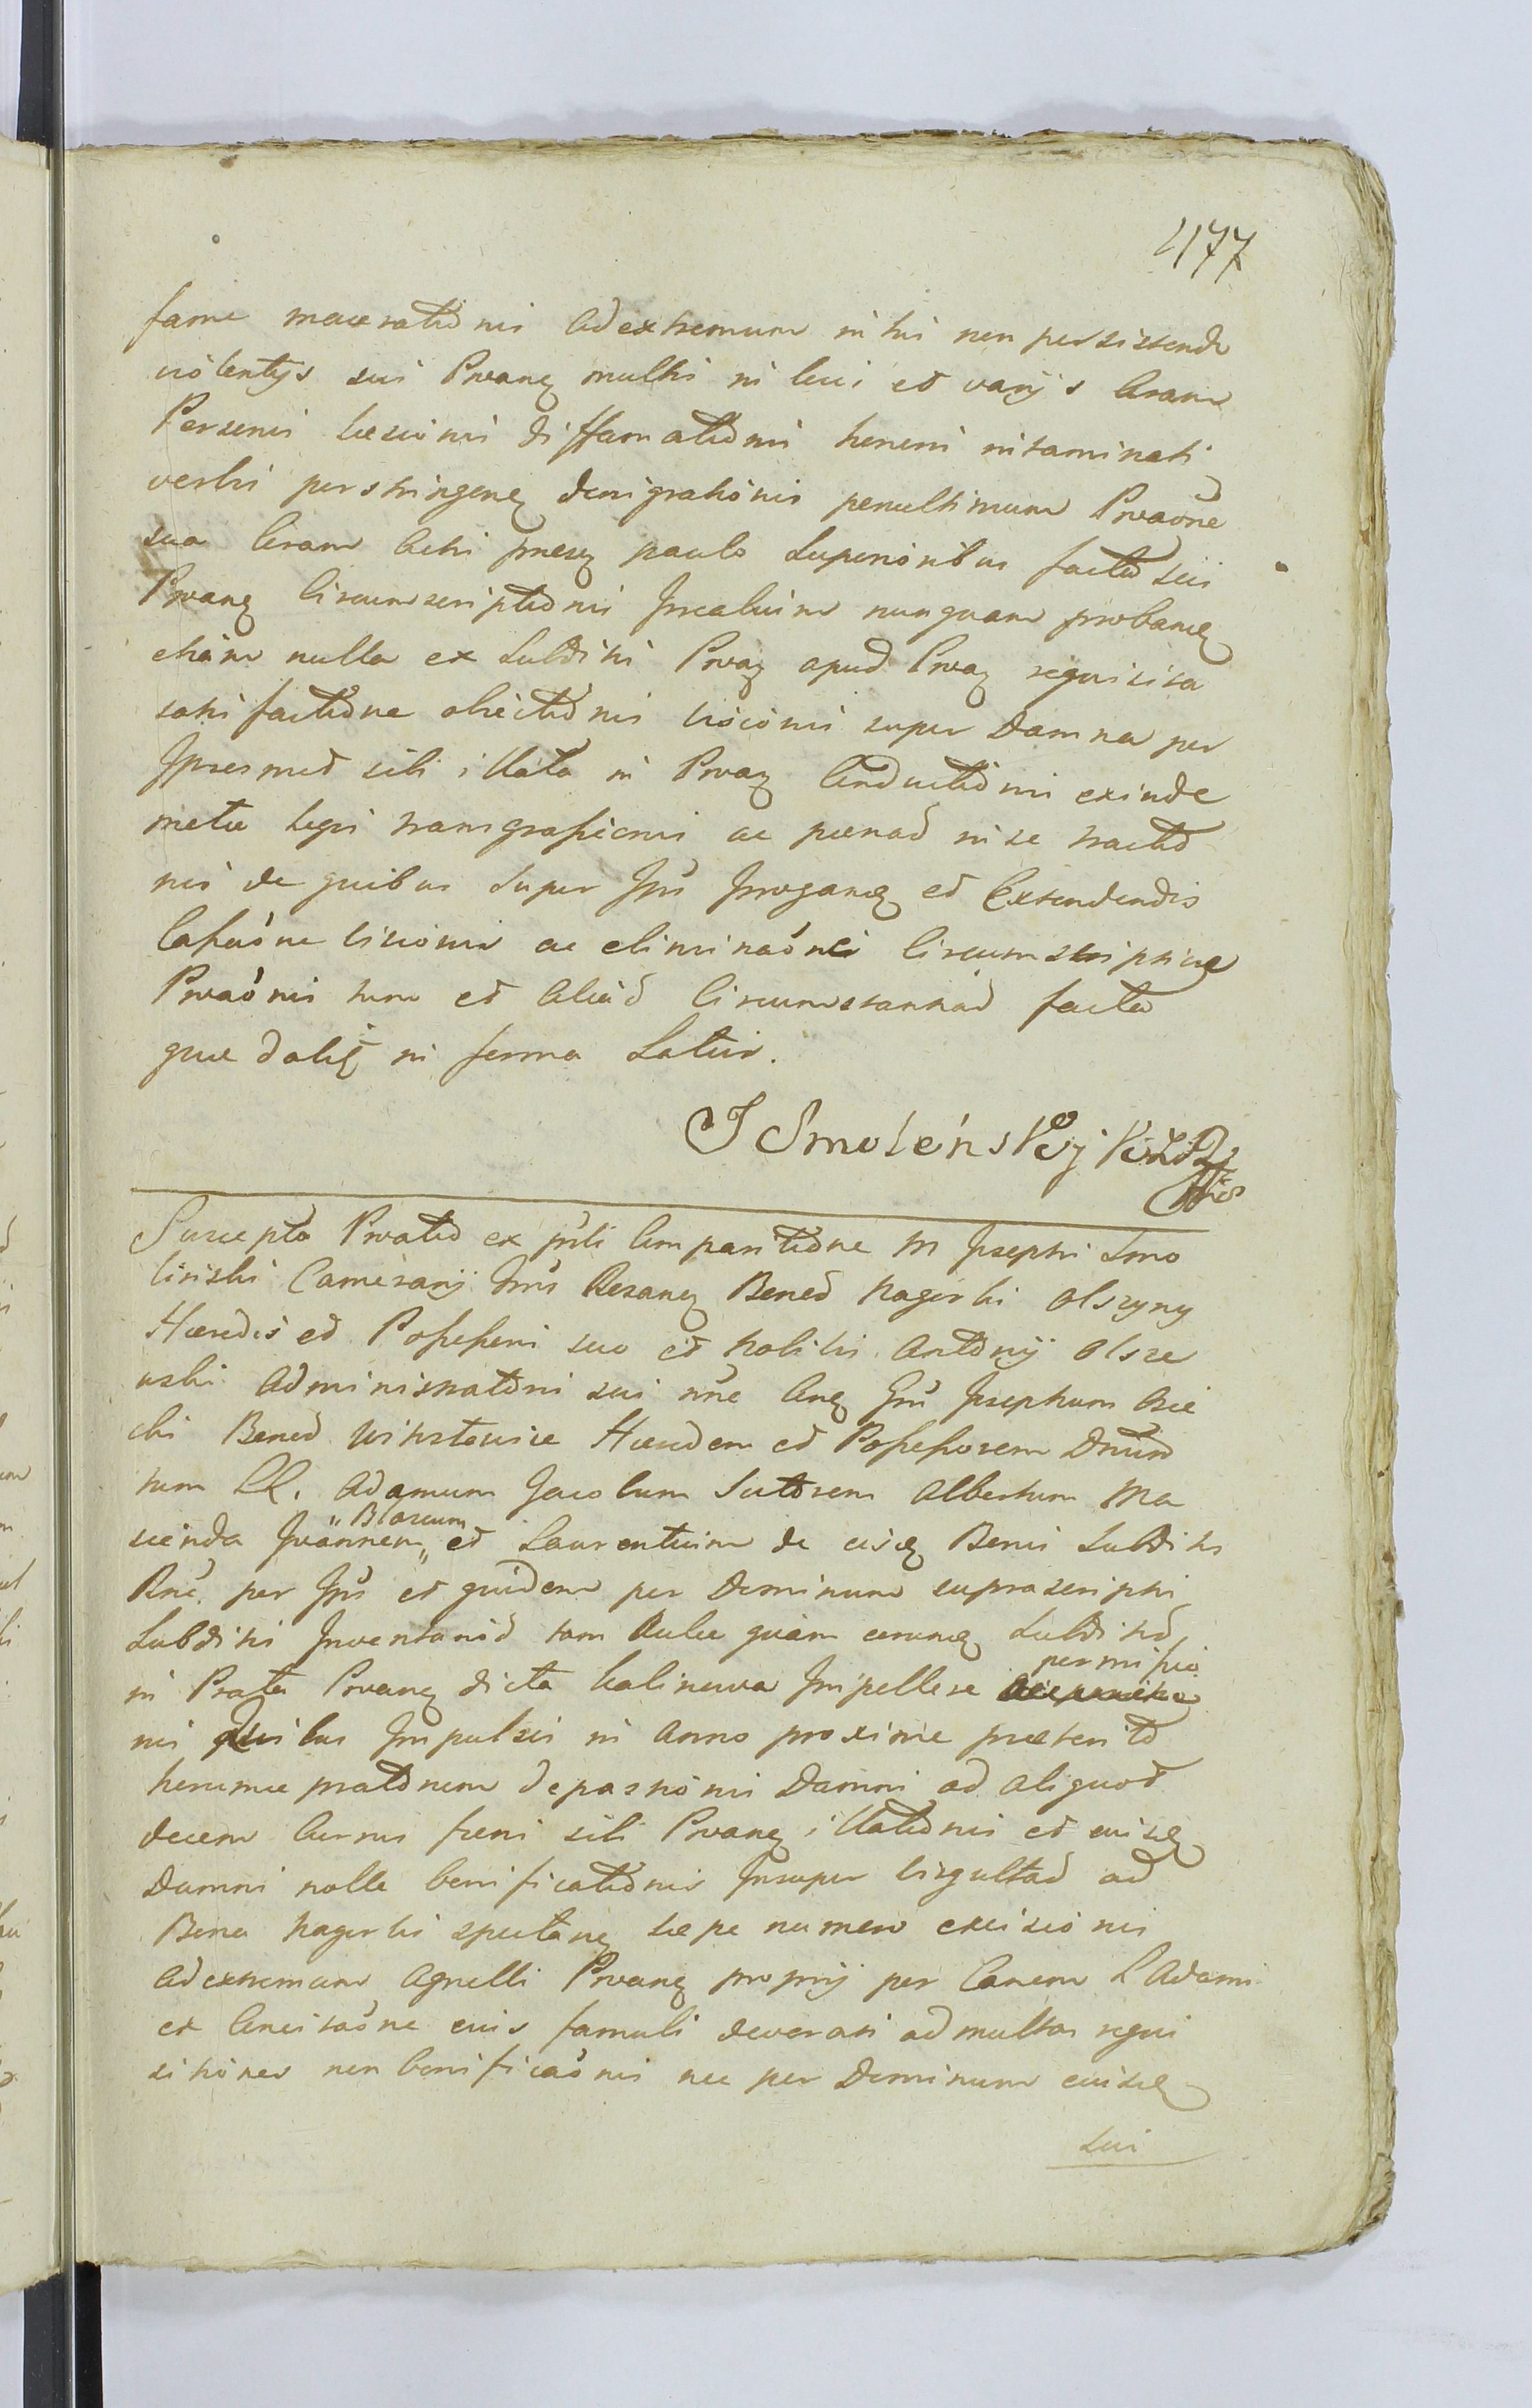 477
fame macerationis ad extremum in his non persistendo
violentijs sui Provanꝫ multis in loci et varijs Coram
Personis læsionis diffamationis honeris intaminati
verbis perstringenꝫ denigrationis penultimum Provaõne
sua Coram Actis præsꝫ paulo Superioribus facto sui
Provanꝫ Circumscriptionis Præalium nunquam probanꝫ
etiam nulla ex Subditis Provaꝫ apud Provaꝫ requisita
satisfactione obiectionis visionis super Damna per
Ipsosmet sibi illata in Provaꝫ Conductionis exinde
metæ legis transgressionis ac pœnas in se tractio
nis de quibus Super Ipũ Irroganꝫ et Extendendis
Cassaõne visionis ac eliminaõnis Circumscriptiuꝫ
Provaõnis tum et alias Circumstantias facta
quæ datis in forma Latius.
J Smoleński
Suscepta Provatio ex pñti Comparitione M Josephi Smo
linski Camerarij Grñs Resanꝫ Bonoꝫ Nagorki Olszyny
Hæredis et Possessoris suo et Nobilis Antonij Olsze
wski Administratoris sui nõe Conꝫ Grũ Josephum Bie
cki Bonoꝫ Wihstowice Hæredem et Possessorem Dnũm
tum LL. Adamum Jacobum Sutorem Albertum Ma
cienda Joannem "Blasium" et Laurentium de eisdꝫ Bonis Subditos
Rnẽ. per Ipũ et quidem per Dominum suprascriptis
Subditis Inventariõ tam Aulæ quam eorumꝫ Subditoꝫ
in Prata Provanꝫ dicta Kalinowa Impellere permissio
nis quibus Impulsis in Anno proxime præterito
herumce pratorum depastionis Damni ad aliquot
decem Currus fœni sibi Provanꝫ illationis et eiusdꝫ
Damni nolle bonificationis Insuper virgultas ad
Bona Nagorki spectanꝫ sæpe numero excisionis
ad extremum Agnelli Provanꝫ proprij per Canem L Adami
et Concitaõne eius famuli devorati ad multas requi
sitiones non bonificaõnis nec per Dominum eiusdꝫ
sui